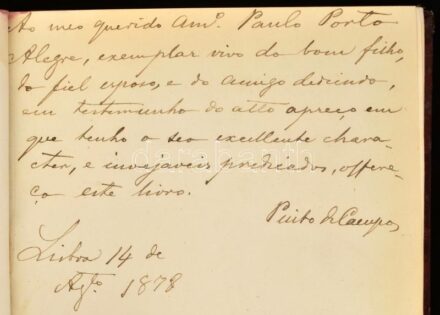 Ao meo querido amº. Paulo Porto
Alegre, exemplar vivo do bom filho,
do fiel esposo, e do amigo dedicado,
em testimunho do alto apreço em
que tenho o seo excellente chara-
cter, e invejaveis predicados, offere-
ço este livro.
Pinto de Campos
Lisboa 14 de
Agto. 1878